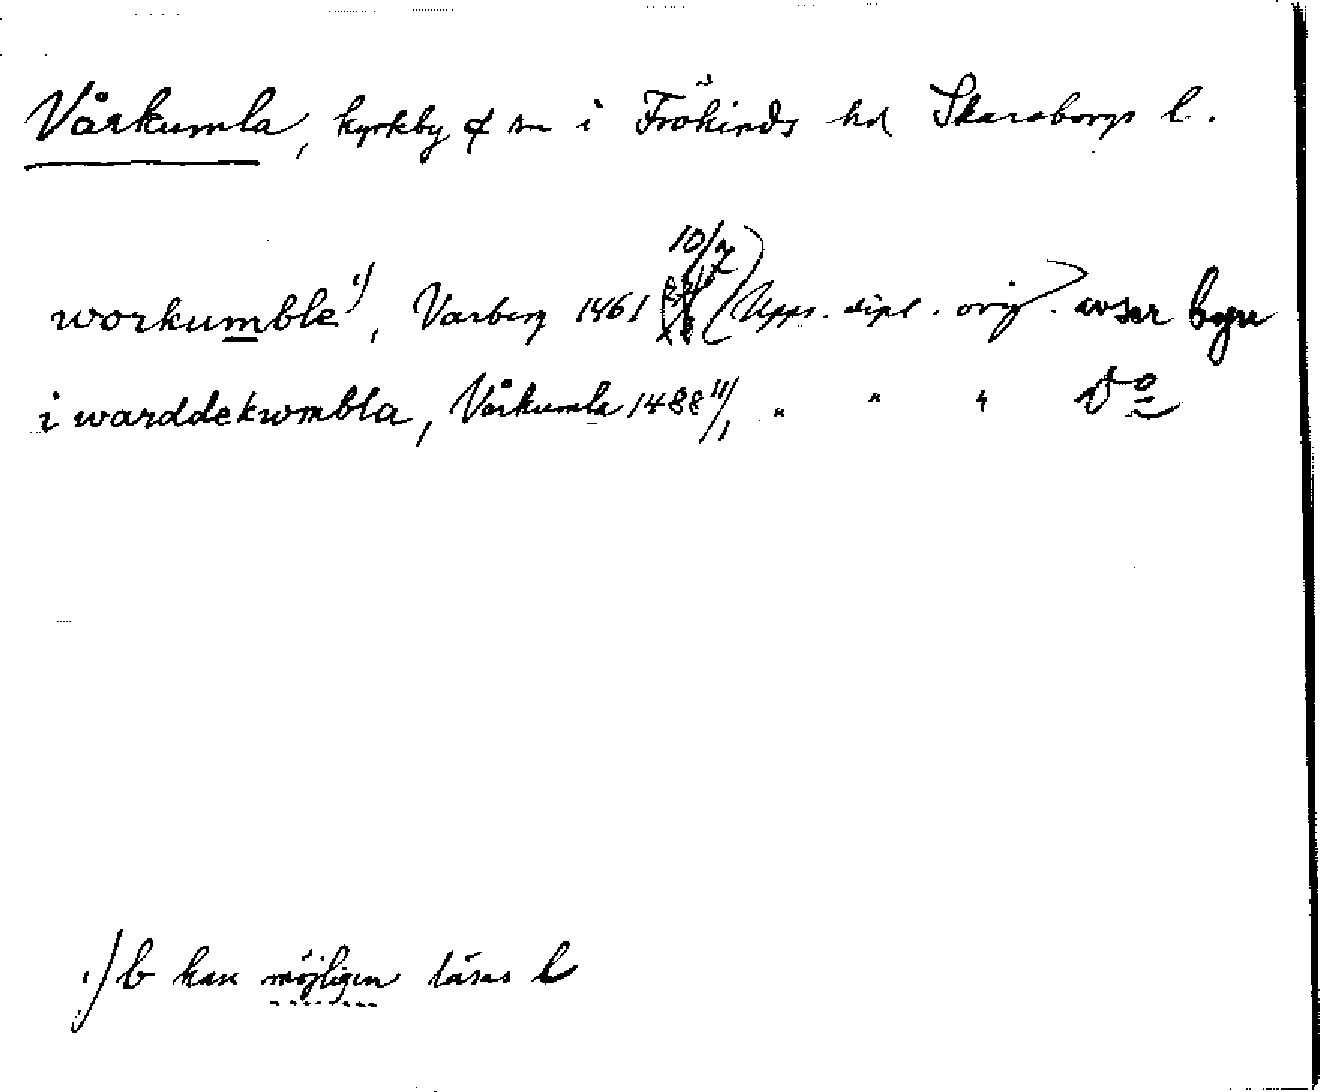 Vårkumla, kyrkby & sn i Frökinds hd Skaraborgs l.
workumble ¹⁾, Varberg 1461 10/7 (Upps. dipl. orig). avser byn
i warddekwmbla, Vårkumla 1488 11/1 " " " D:o
¹⁾ b kan möjligen läsas l